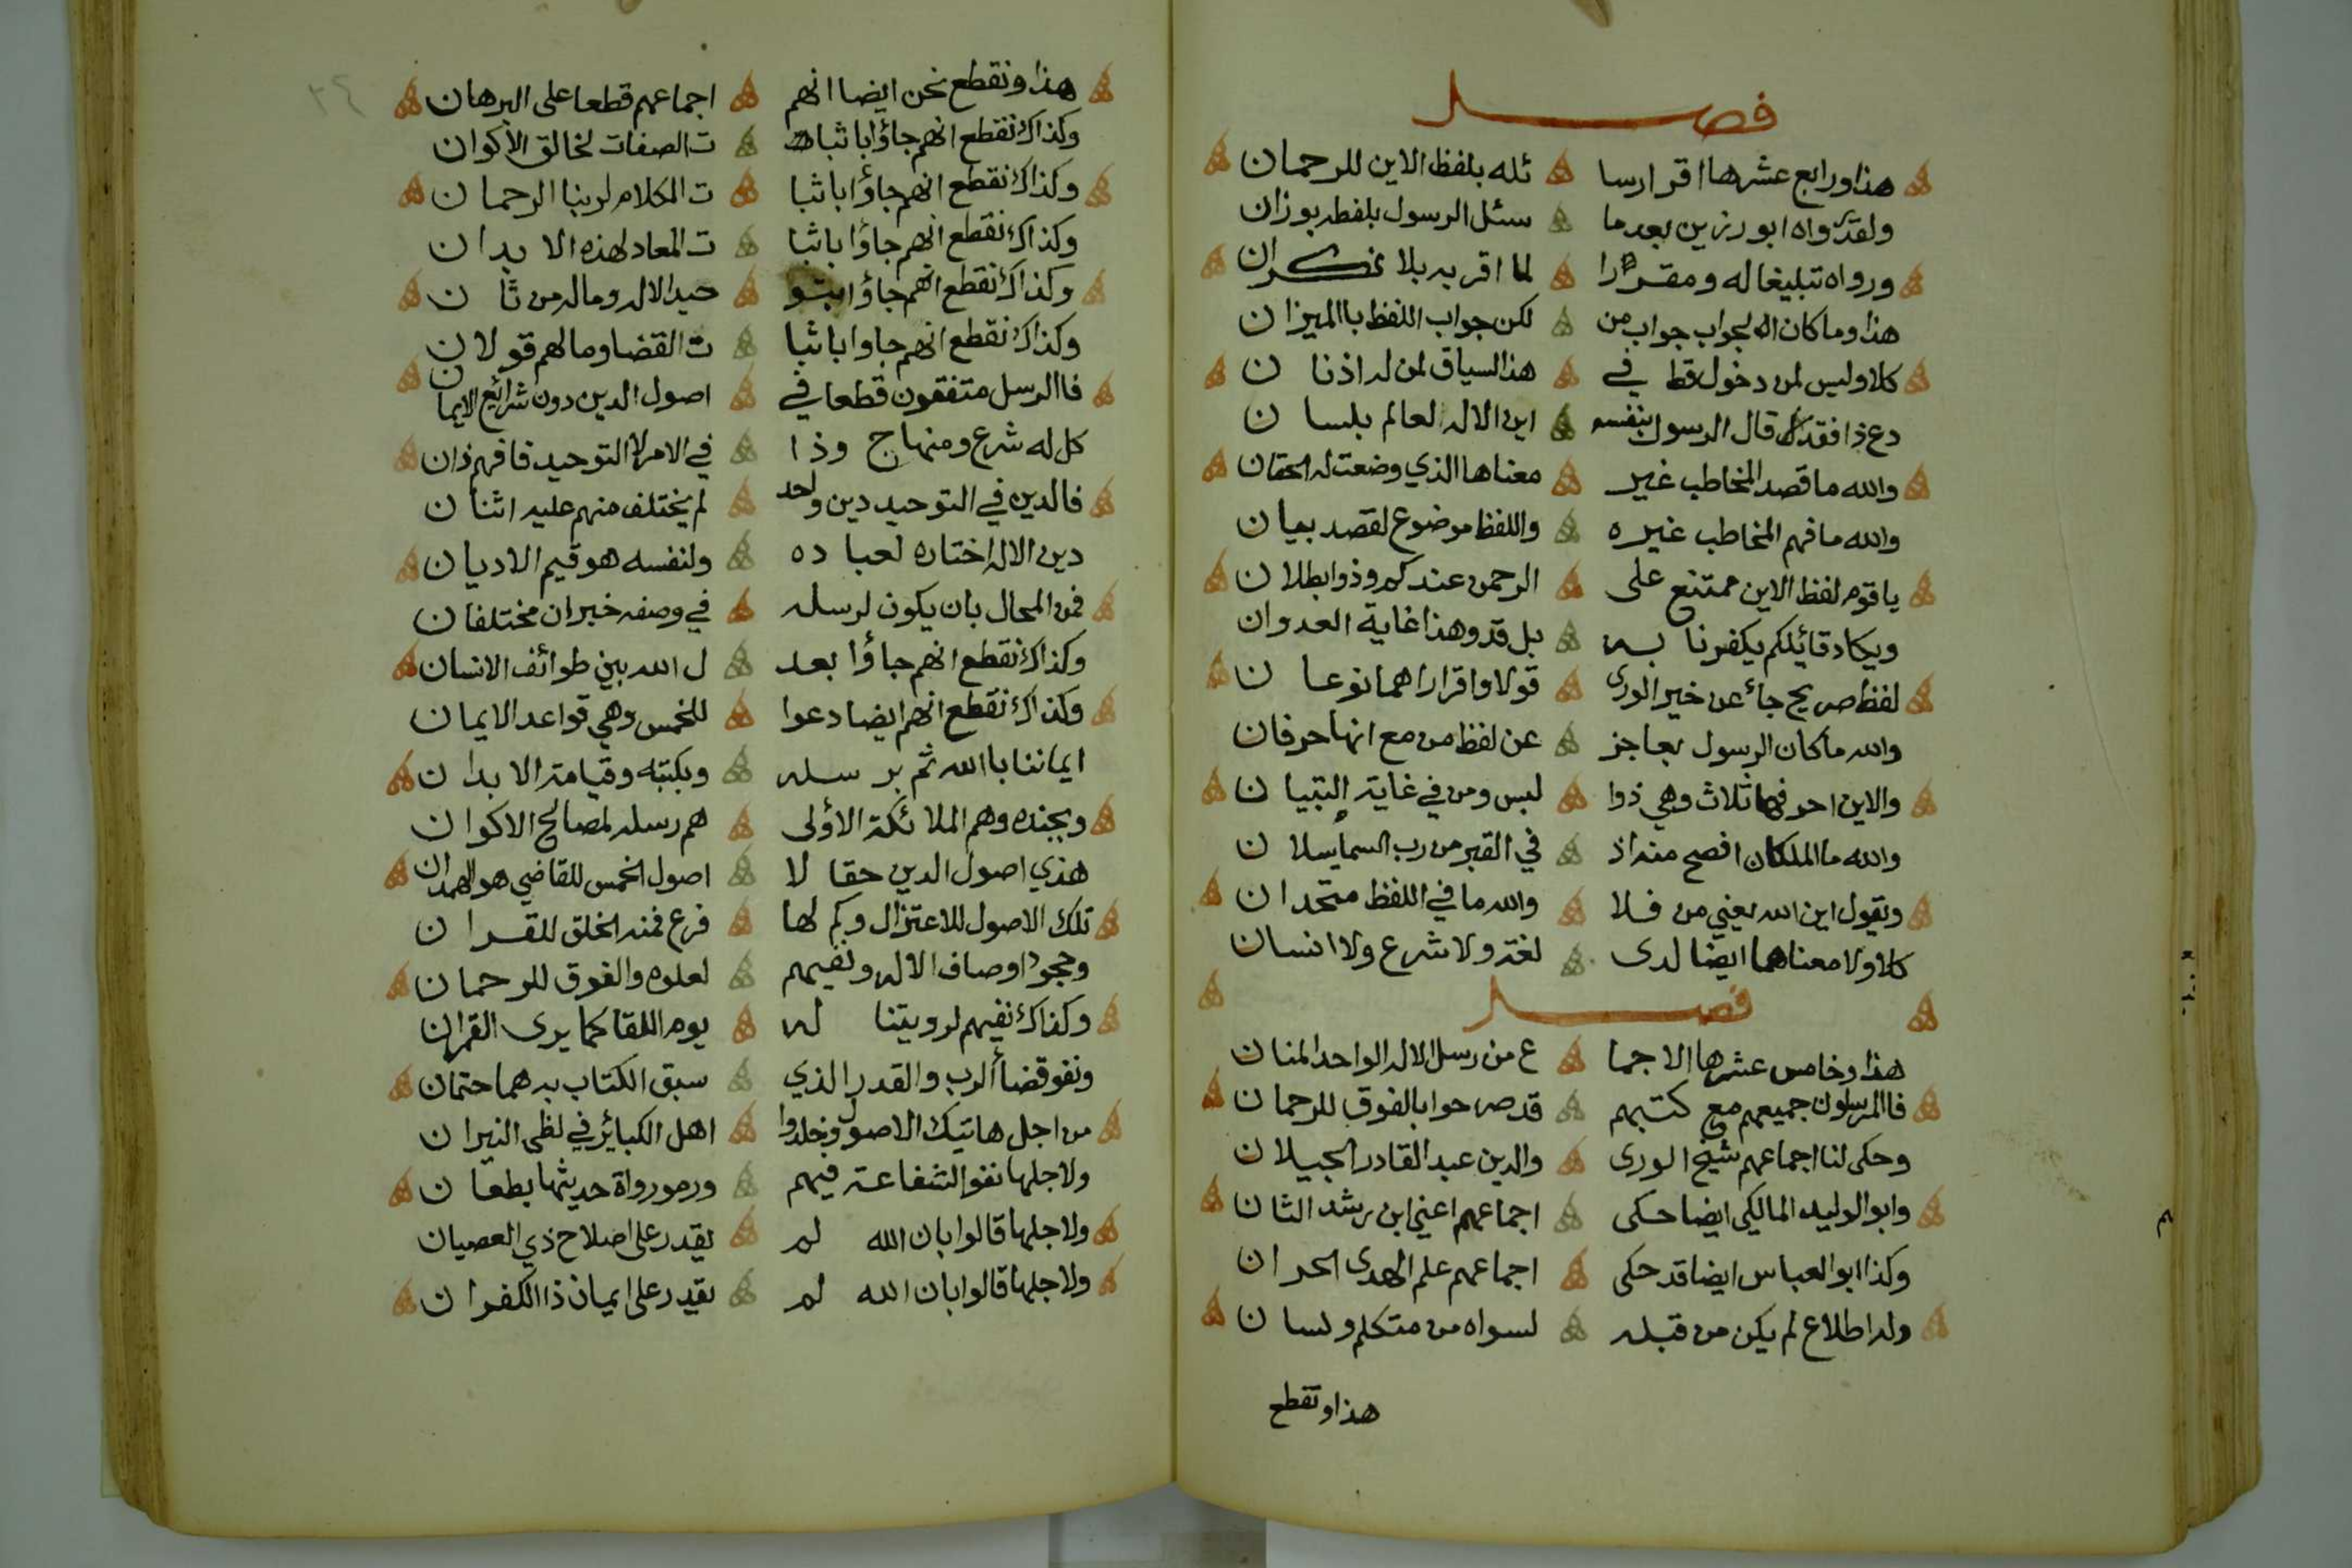 فصل
هذا ورابع عشرها اقرار سا ئله بلفظ الاين للرحمان
ولقد رواه ابو رزين بعد ما سئل الرسول بلفظه بوزان
ورواه تبليغا له ومقررا لما اقر به بلا نكران
هذا وما كان الجواب جواب من لكن جواب اللفظ باالميزان
كلا وليس لمن دخول قط في هذا السياق لمن له اذنان
دع ذا فقد قال الرسول بنفسه اين الاله لعالم بلسان
والله ما قصد المخاطب غير معناها الذي وضعت له الحقان
والله ما فهم المخاطب غيره واللفظ موضوع لقصد بيان
يا قوم لفظ الاين ممتنع على الرحمن عندكم وذو ابطلان
ويكاد قائلكم يكفرنا به بل قد وهذا غاية العدوان
لفظ صريح جاء عن خير الورى قولا واقرارا هما نوعان
والله ما كان الرسول بعاجز عن لفظ من مع انها حرفان
والاين احرفها ثلاث وهي ذوا لبس ومن في غاية التبيان
والله ما الملكان افصح منه اذ في القبر من رب السما يسلان
ويقول اين الله يعني من فلا والله ما في اللفظ متحدان
كلا ولا معناهما ايضا لدى لغة ولا شرع ولا انسان
فصل
هذا وخامس عشرها الاجما ع من رسل الاله الواحد المنان
فاالمرسلون جميعهم مع كتبهم قد صرحوا بالفوق للرحمان
وحكى لنا اجماعهم شيخ الورى والدين عبد القادر الجيلان
وابو الوليد المالكي ايضا حكى اجماعهم اعني ابن رشد الثان
وكذا ابو العباس ايضا قد حكى اجماعهم علم الهدى الحران
وله اطلاع لم يكن من قبله لسواه من متكلم ولسان
هذا ونقطع
٣٤
هذا ونقطع نحن ايضا انهم اجماعهم قطعا على البرهان
وكذاك نقطع انهم جاؤا باثبا ت الصفات لخالق الاكوان
وكذاك نقطع انهم جاؤا باثبا ت الكلام لربنا الرحمان
وكذاك نقطع انهم جاؤا باثبا ت المعاد لهذه الابدان
وكذاك نقطع انهم جاؤا بتو حيد الاله وما له من ثان
وكذاك نقطع انهم جاوا باثبا ت القضا وما لهم قولان
فاالرسل متفقون قطعا في اصول الدين دون شرائع الايمان
كل له شرع ومنهاج وذا في الامر لا التوحيد فافهم ذان
فالدين في التوحيد دين واحد لم يختلف منهم عليه اثنان
دين الاله اختاره لعباده ولنفسه هو قيم الاديان
فمن المحال بان يكون لرسله في وصفه خبران مختلفان
وكذاك نقطع انهم جاؤا بعد ل الله بين طوائف الانسان
وكذاك نقطع انهم ايضا دعوا للخمس وهي قواعد الايمان
ايماننا باالله ثم برسله وبكتبه وقيامة الابدان
وبجنده وهم الملائكة الأولى هم رسله لمصالح الاكوان
هذي اصول الدين حقا لا اصول الخمس للقاضي هو الهمدان
تلك الاصول للاعتزال وكم لها فرع فمنه الخلق للقران
وجحود اوصاف الاله ونفيهم لعلوه والفوق للرحمان
وكذاك نفيهم لرويتنا له يوم اللقا كما يرى القمران
ونفو قضاأ الرب والقدر الذي سبق الكتاب به هما حتمان
من اجل هاتيك الاصول وخلدوا اهل الكبائر في لظى النيران
ولاجلها نفو الشفاعة فيهم ورمو رواة حديثها بطعان
ولاجلها قالوا بان الله لم يقدر على اصلاح ذي العصيان
ولاجلها قالوا بان الله لم يقدر على ايمان ذا الكفران